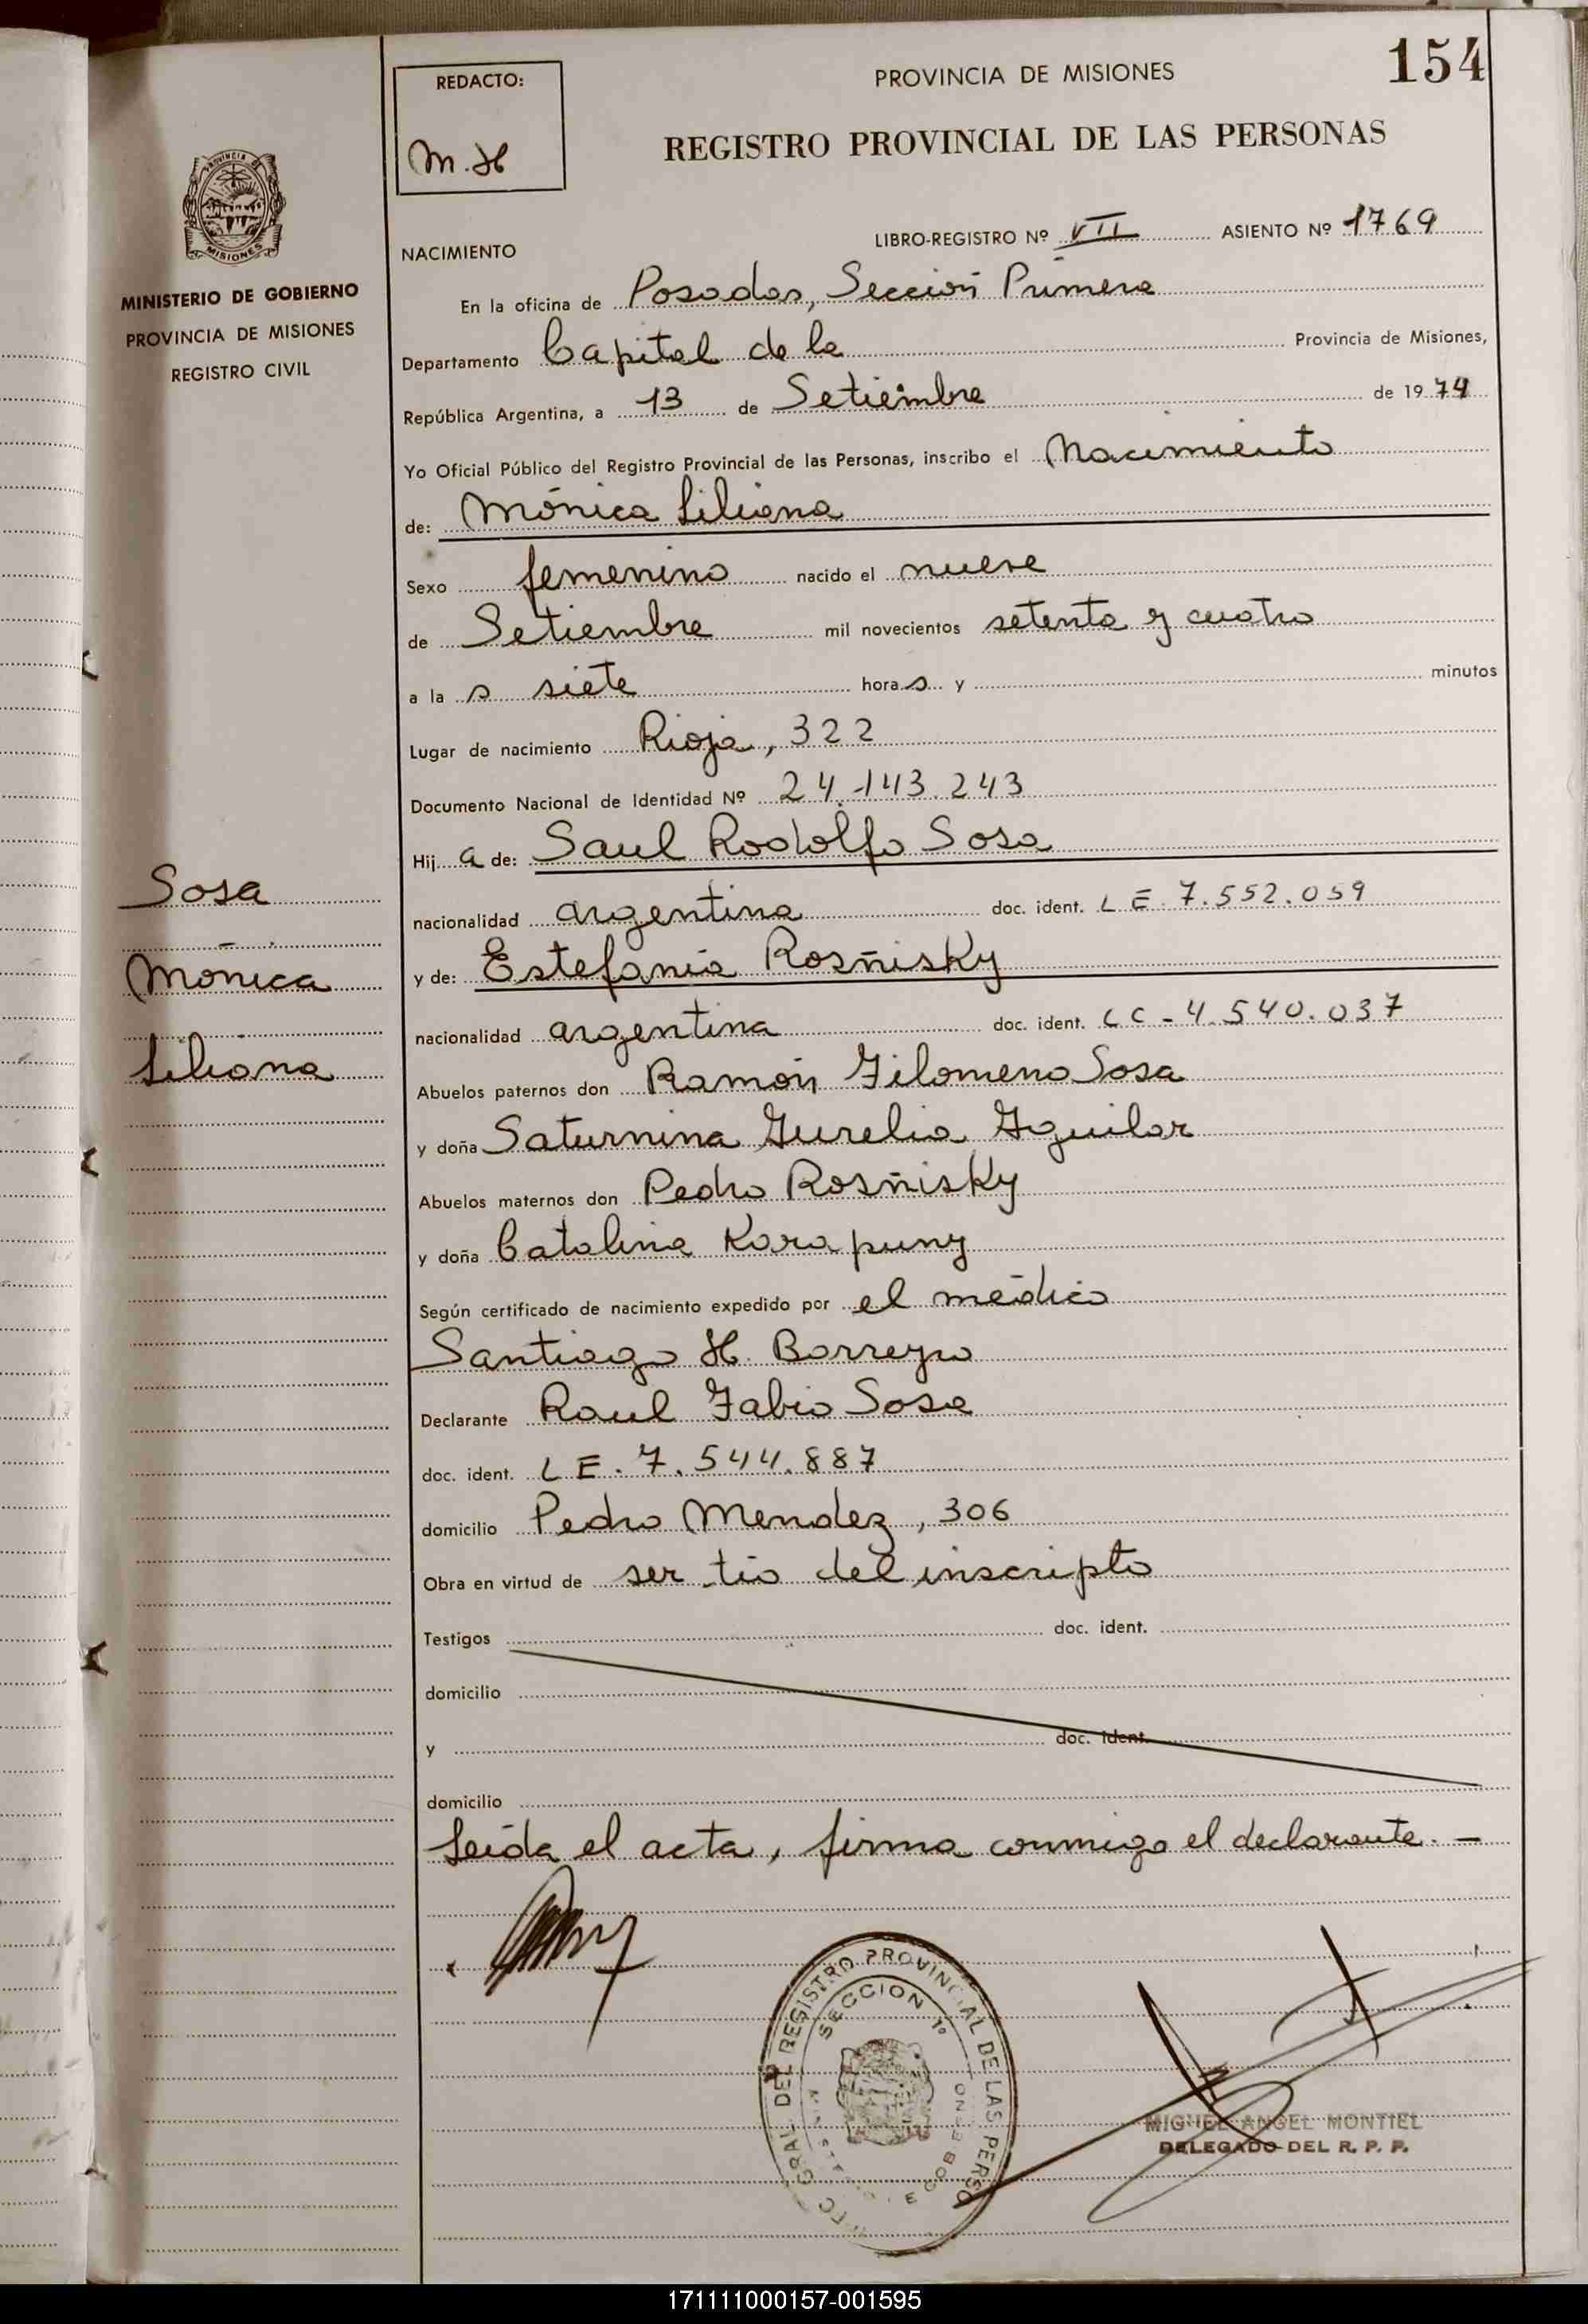 154
REDACTO:
M.H
PROVINCIA DE MISIONES
REGISTRO PROVINCIAL DE LAS PERSONAS
PROVINCIA DE
MISIONES
MINISTERIO DE GOBIERNO
PROVINCIA DE MISIONES
REGISTRO CIVIL
NACIMIENTO
LIBRO-REGISTRO Nº VII ASIENTO Nº 1769
En la oficina de Posadas, Sección Primera
Departamento Capital de la Provincia de Misiones,
República Argentina, a 13 de Setiembre de 1974
Yo Oficial Público del Registro Provincial de las Personas, inscribo el Nacimiento
de: Mónica Liliana
Sexo femenino nacido el nueve
de Setiembre mil novecientos setenta y cuatro
a la s siete hora s y minutos
Lugar de nacimiento Rioja, 322
Documento Nacional de Identidad Nº 24.143.243
Hij a de: Saul Rodolfo Sosa
nacionalidad argentina doc. ident. L E. 7.552.059
y de: Estefanía Rosñisky
nacionalidad argentina doc. ident. L C - 4.540.037
Abuelos paternos don Ramón Filomeno Sosa
y doña Saturnina Aurelia Aguilar
Abuelos maternos don Pedro Rosñisky
y doña Catalina Korapuny
Según certificado de nacimiento expedido por el médico
Santiago H. Borreyro
Declarante Raul Fabio Sosa
doc. ident. L E. 7.544.887
domicilio Pedro Mendez, 306
Obra en virtud de ser tío del inscripto
Testigos doc. ident.
domicilio
y doc. ident.
domicilio
Leída el acta, firma conmigo el declarante. —
Sosa
Mónica
Liliana
GRAL DEL REGISTRO PROVINCIAL DE LAS PERSO
SECCION 1º
MIGUEL ANGEL MONTIEL
DELEGADO DEL R. P. P.
171111000157-001595